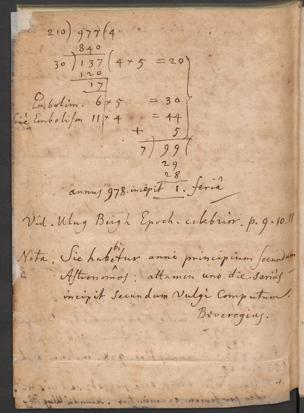 210) 977 (4
840
30) 137 (4 × 5 = 20
120
17
Embolim. 6 × 5 = 30
Embolism 11 × 4 = 44
+ 5
7) 99 (
29
28
annus 978. incepit 1. feriâ
Vid. Ulug Beigh Epoch. celebrior. p. 9. 10. 11
Nota, Sic habetur anni principium secundum
Astronomos: attamen uno die serius
incipit secundum Vulgi Computum.
Beveregius.